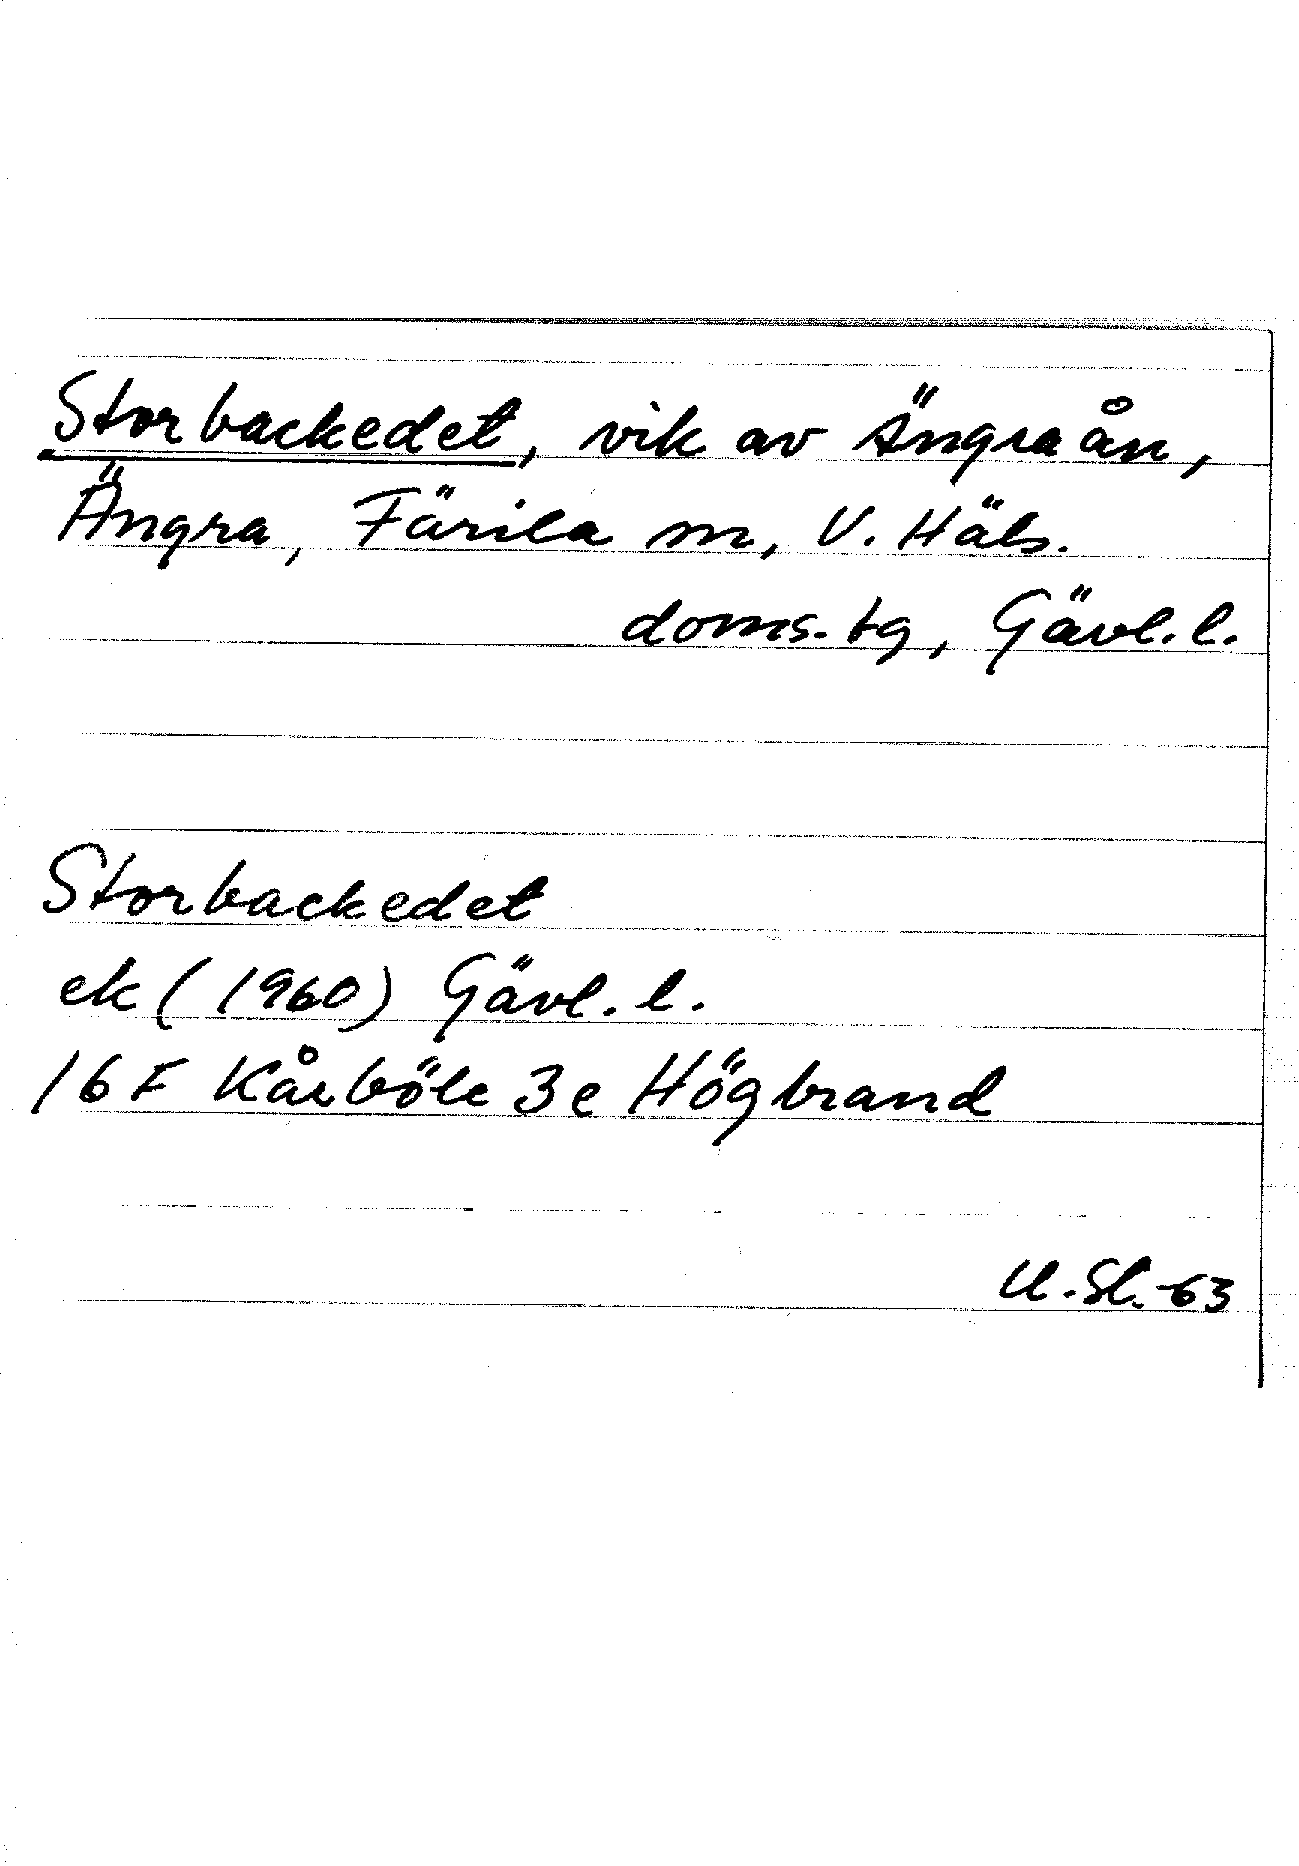 Storbackedet, vik av Ängraån,
Ängra, Färila sn, V. Häls.
doms.tg, Gävl.l.
Storbackedet
ek (1960) Gävl.l.
16 F Kårböle 3e Högbrand
U.Sl.-63